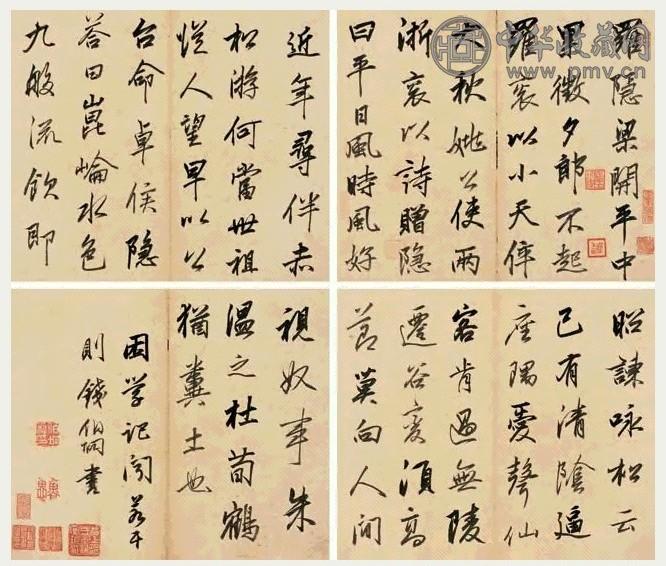 羅隱梁開平中
累徵夕郎不起
羅衮以小天倅
大秋姚公使兩
浙衮以詩贈隱
曰平日風時風好
近年尋伴赤
松游何當世祖
從人望早以公
台命卓侯隱
答曰崑崙水色
九般流飲即
昭諫詠松云
已有清陰逼
座隅愛聲仙
客肯過無陵
遷谷變須高
節莫向人間
視奴事朱
溫之杜荀鶴
猶糞土也
困學記聞若干
則錢伯坰書
中华收藏网
www.pmv.cn